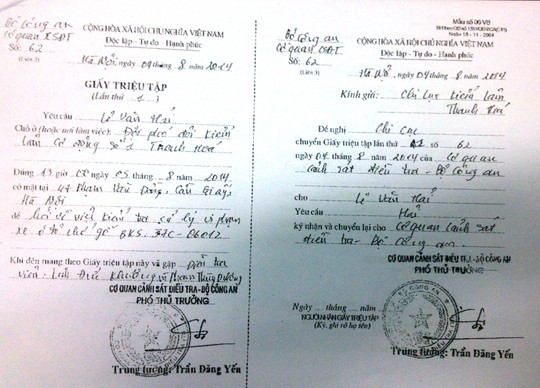 Bộ Công an
Cơ quan CSĐT
Số: 62
(Liên 2)
CỘNG HÒA XÃ HỘI CHỦ NGHĨA VIỆT NAM
Độc lập - Tự do - Hạnh phúc
Hà Nội, ngày 04 tháng 8 năm 2014
GIẤY TRIỆU TẬP
(Lần thứ 1)
Yêu cầu Lê Văn Hải
Chỗ ở (hoặc nơi làm việc): Đội phó đội kiểm
lâm cơ động số 1 Thanh Hoá
Đúng 13 giờ 00 ngày 05 tháng 8 năm 2014
có mặt tại 47 Phạm Văn Đồng, Cầu Giấy,
Hà Nội
để hỏi về việc kiểm tra xử lý vi phạm
xe ô tô chở gỗ BKS: 37C-06012
Khi đến mang theo Giấy triệu tập này và gặp Điều tra
viên: Linh Đức Khương và Phạm Thùy Dương
CƠ QUAN CẢNH SÁT ĐIỀU TRA-BỘ CÔNG AN
PHÓ THỦ TRƯỞNG
Trung tướng: Trần Đăng Yến
Mẫu số 06 VB
Ngày 18 - 11 - 2004
Bộ Công an
Cơ quan CSĐT
Số: 62
(Liên 3)
CỘNG HÒA XÃ HỘI CHỦ NGHĨA VIỆT NAM
Độc lập - Tự do - Hạnh phúc
Hà Nội, ngày 04 tháng 8 năm 2014
Kính gửi: Chi cục Kiểm lâm
Thanh Hoá
Đề nghị Chi cục
chuyển Giấy triệu tập lần thứ số 62
ngày 04 tháng 8 năm 2014 của Cơ quan
Cảnh sát điều tra - Bộ Công an
cho Lê Văn Hải
Yêu cầu Hải
ký nhận và chuyển lại cho Cơ quan Cảnh sát
điều tra - Bộ Công an
CƠ QUAN CẢNH SÁT ĐIỀU TRA-BỘ CÔNG AN
PHÓ THỦ TRƯỞNG
Ngày .... tháng .... năm
NGƯỜI NHẬN GIẤY TRIỆU TẬP
(Ký, ghi rõ họ tên)
Trung tướng: Trần Đăng Yến